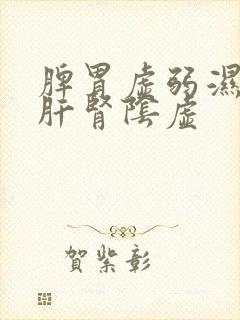 脾胃虛弱濕
肝腎陰虛
賀紫彰